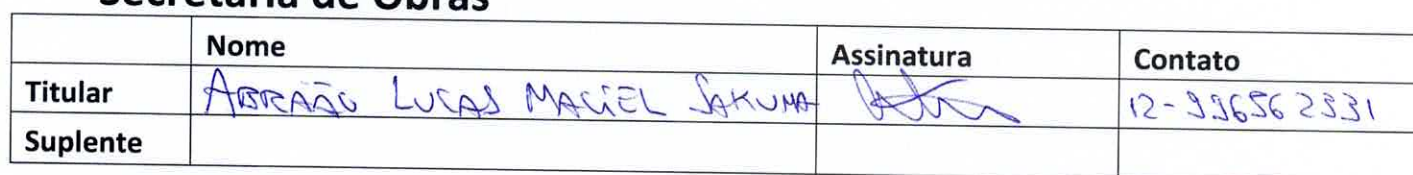 Secretaria de Obras
Nome Assinatura Contato
Titular ABRAÃO LUCAS MACIEL SAKUMA 12-996562331
Suplente